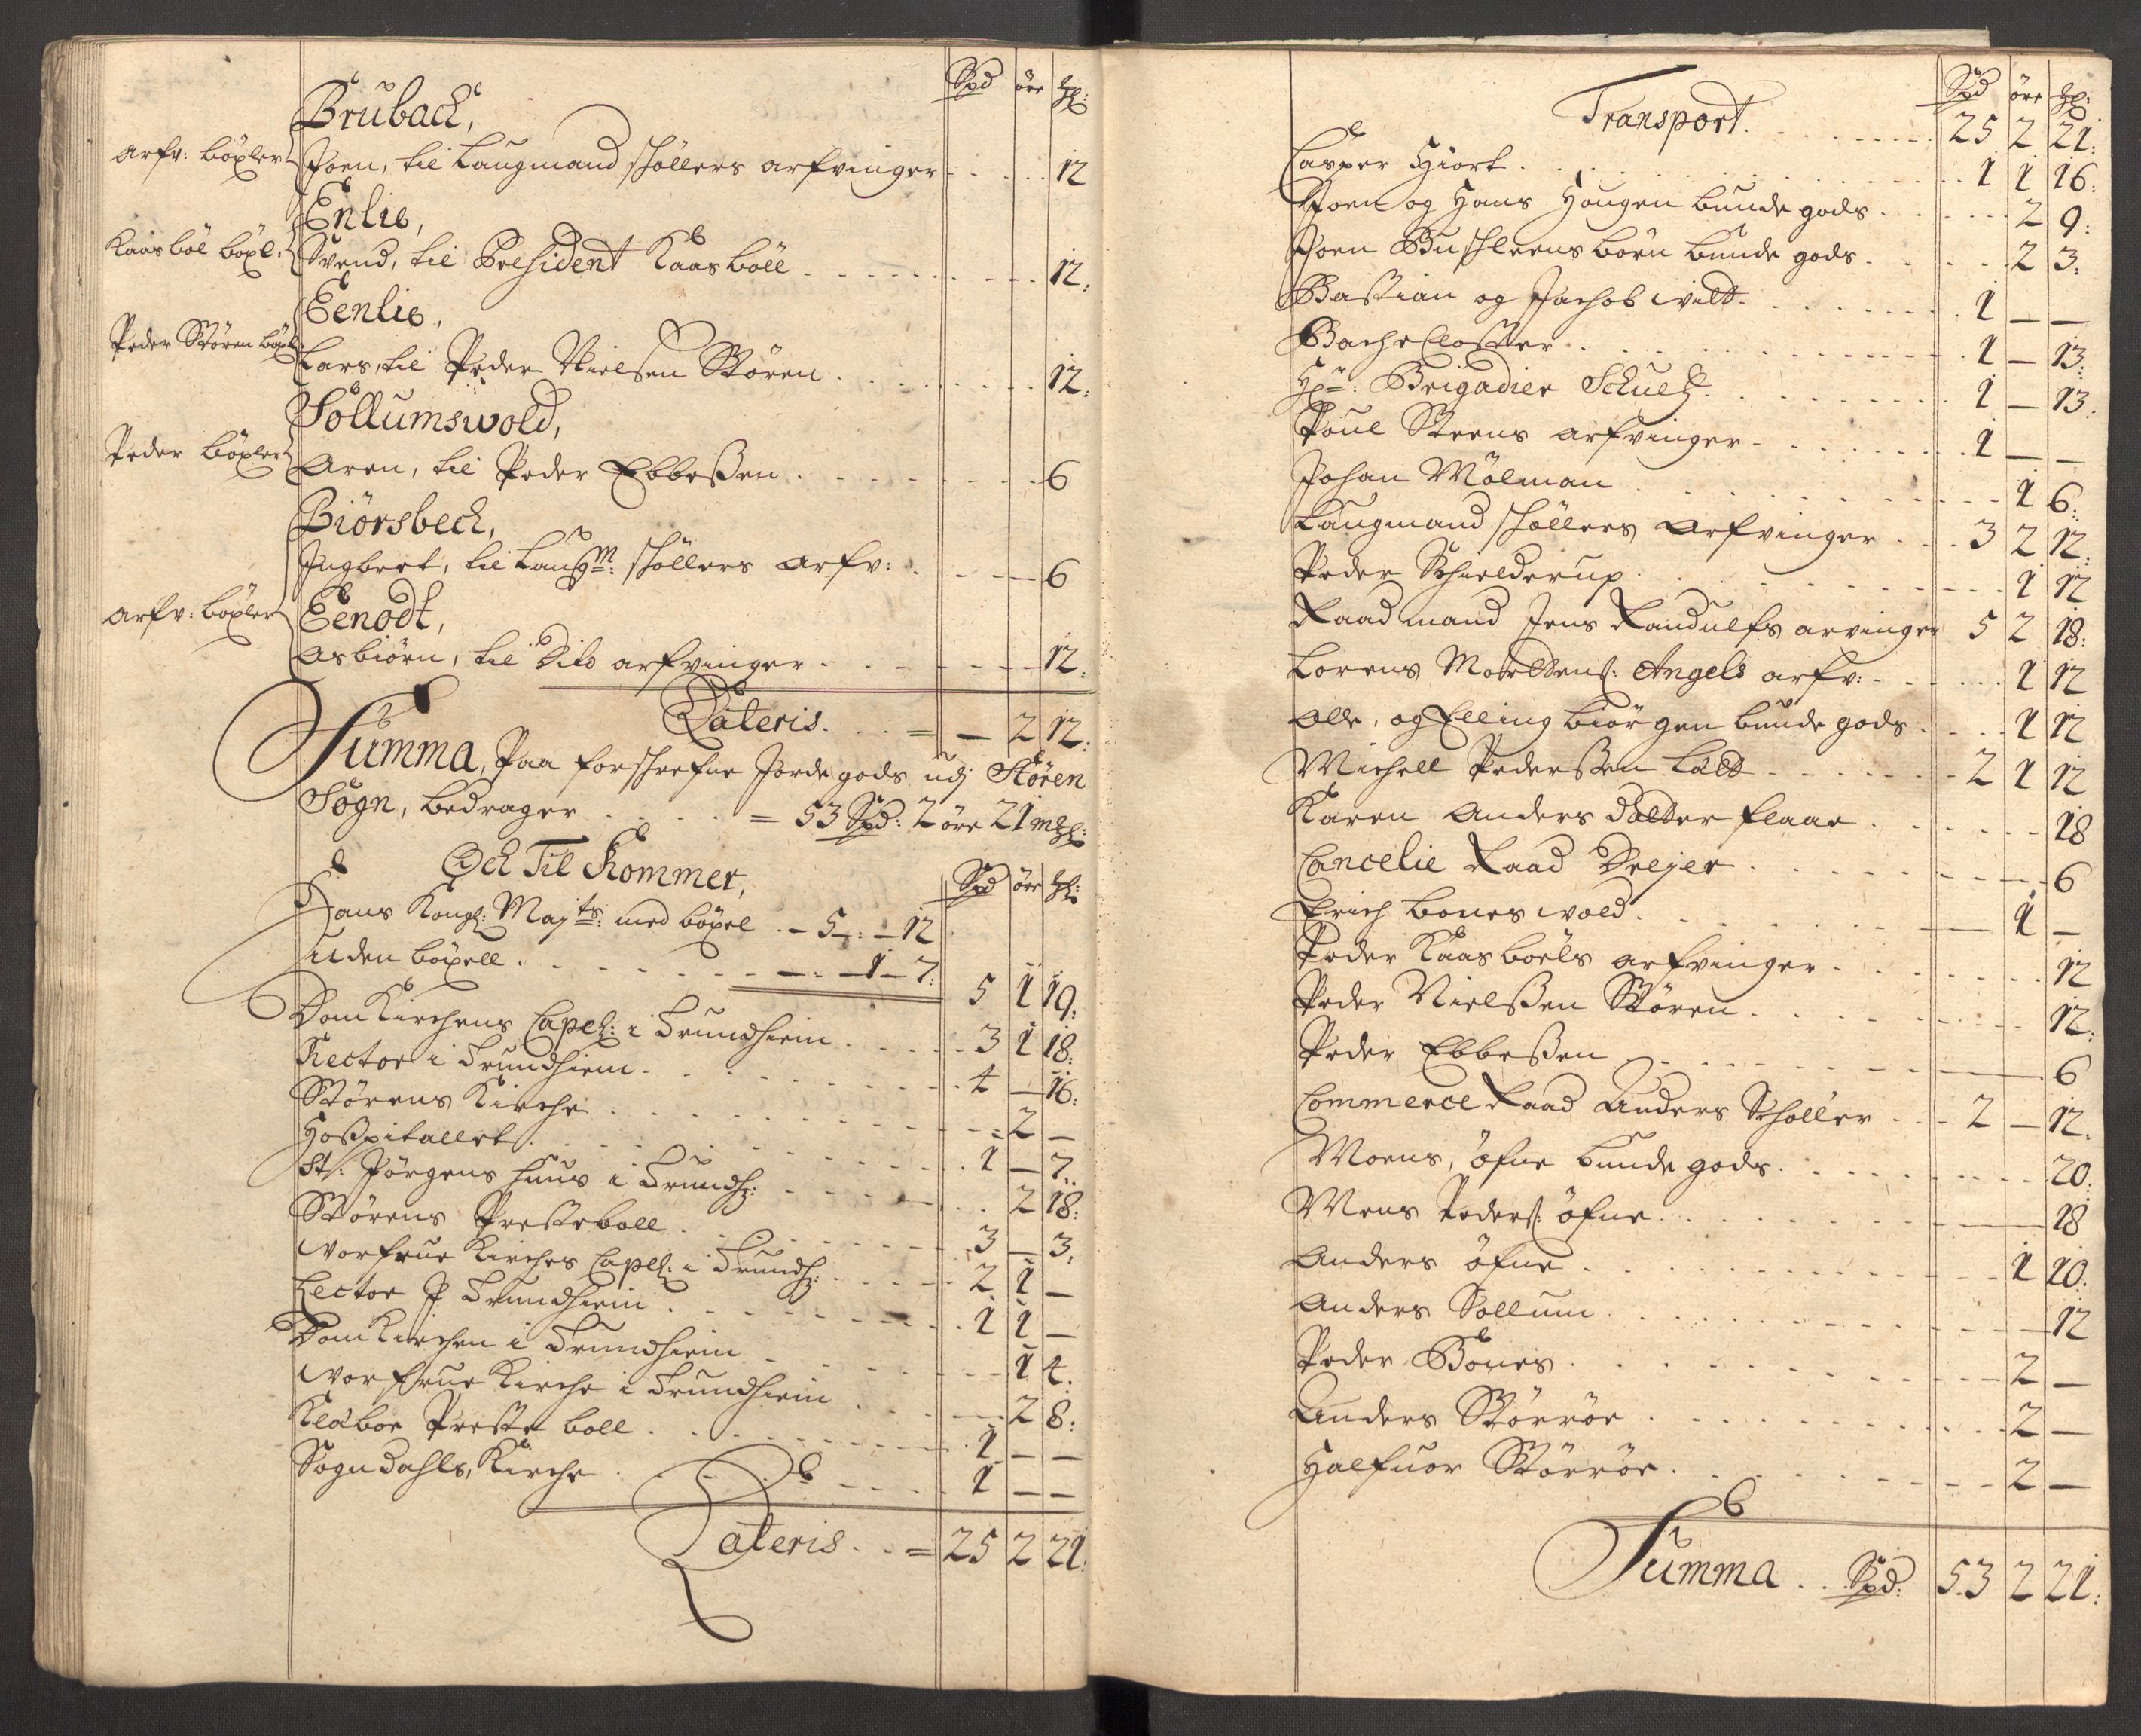 Spd öre mkl:
Brubach,
Arfv: böxler Joen, til Laugmand Schöllers arfvinger . . . 12
Enlie,
Kaasböl böxl: Svend, til Præsident Kaasböll . . . 12:
Eenlie,
Peder Stören böxl: Lars, til Peder Nielsen Stören . . . 12:
Söllumswold,
Peder böxler Aren, til Peder Ebbeßen . . . 6
Biörsbech,
Ingbret, til Laugm: Schöllers Arfv: . . . 6
Arfv: böxler Eenodt,
Asbiörn, til Dito arfvinger . . . 12.
Lateris. . . = — 2 12:
Summa, Paa forschrefne Jorde gods udj Stören
Sogn, bedrager . . . = 53 Spd: 2 öre 21 mkl:
Och Til Kommer,
Spd öre mkl:
Hans Kongl: Mayts: med böxel . – 5 –: – 12
uden böxell . . . –:– 1 – 7:
5 1 19:
Dom Kirchens Capel: i Trundhiem . . . 3 1 18:
Rector i Trundhiem . . . 4 — 16:
Störens Kirche . . . 2 —
Hoßpitallet . . . 1 — 7.
St: Jörgens huus i Trundh: . . . 2 18:
Störens Presteboll . . . 3 — 3.
Vor frue Kirches Capel: i Trundh: . . . 2 1 —
Lector J Trundhiem . . . 1 1 —
Dom Kirchen i Trundhiem . . . 1 4.
Vor frue Kirche i Trundhiem . . . 2 8:
Klæboe Preste boll . . . 1 — —
Sogndahls Kirche . . . 1 — —
Lateris . . = 25 2 21.
Spd öre mkl:
Transport . . . 25 2 21:
Casper Hiort . . . 1 1 16:
Joen og Hans Hougen bunde gods . . . 2 9:
Joen Buschleens börn bunde gods . . . 2 3:
Bastian og Jachob wild . . . 1 — —
Bache Closter . . . 1 — 13:
Hr: Brigadier Schultz . . . 1 — 13:
Poul Steens arfvinger . . . 1 — —
Johan Mölman . . . 1 6:
Laugmand Schöllers Arfvinger . . . 3 2 12:
Peder Schielderup . . . 1 12
Raadmand Jens Randulfs arvinger 5 2 18:
Lorens Mortens: Angels arfv: . . . 1 12
Olle, og Elling biörgen bunde gods . . . 1 12
Michell Pederßen . . . 2 1 12
Karen Anders datter flaae . . . 18
Cancelie Raad Dreyer . . . 6
Erich bones wold . . . 1 —
Peder Kaasboels arfvinger . . . 12
Peder Nielßen Stören . . . 12:
Peder Ebbeßen . . . 6
Commerce Raad Anders Schöller . . . 2 — 12.
Moens, öfne bunde gods . . . 20:
Mons Peders: öfne . . . 18
Anders öfne . . . 1 10:
Anders Sollum . . . 12
Peder Bones . . . 2 —
Anders Störröe . . . 2 —
Halfuor Störröe . . . 2 —
Summa . . Spd: 53 2 21: